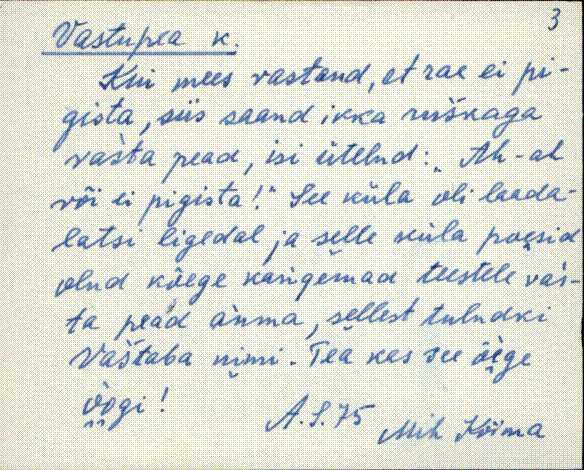 3
Vastupea k.
Kui mees vastand, et rae ei pi-
gista, siis saand ikka ruškaga
vašta pead, isi ütelnd: „Ah-ah
või ei pigista!" See küla oli laada-
latsi ligedal ja selle küla poesid
olnd kõege kangemad teestele vaš-
ta pead anma, sellest tulndki
Vaštaba nimi. Tea kas see õege
õogi!
A.S. 75
Mih Kõima